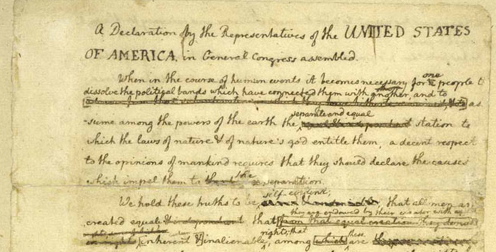 A Declaration by the Representatives of the UNITED STATES
OF AMERICA, in General Congress assembled.
When in the course of human events it becomes necessary for one people to
dissolve the political bands which have connected them with another, and to
as-
separate and equal
-sume among the powers of the earth the station to
which the laws of nature & of nature's god entitle them, a decent respect
to the opinions of mankind requires that they should declare the causes
which impel them to the separation.
self-evident,
We hold these truths to be that all men are
they are endowed by their creator with
created equal that
rights; that these
inherent & inalienable among which are